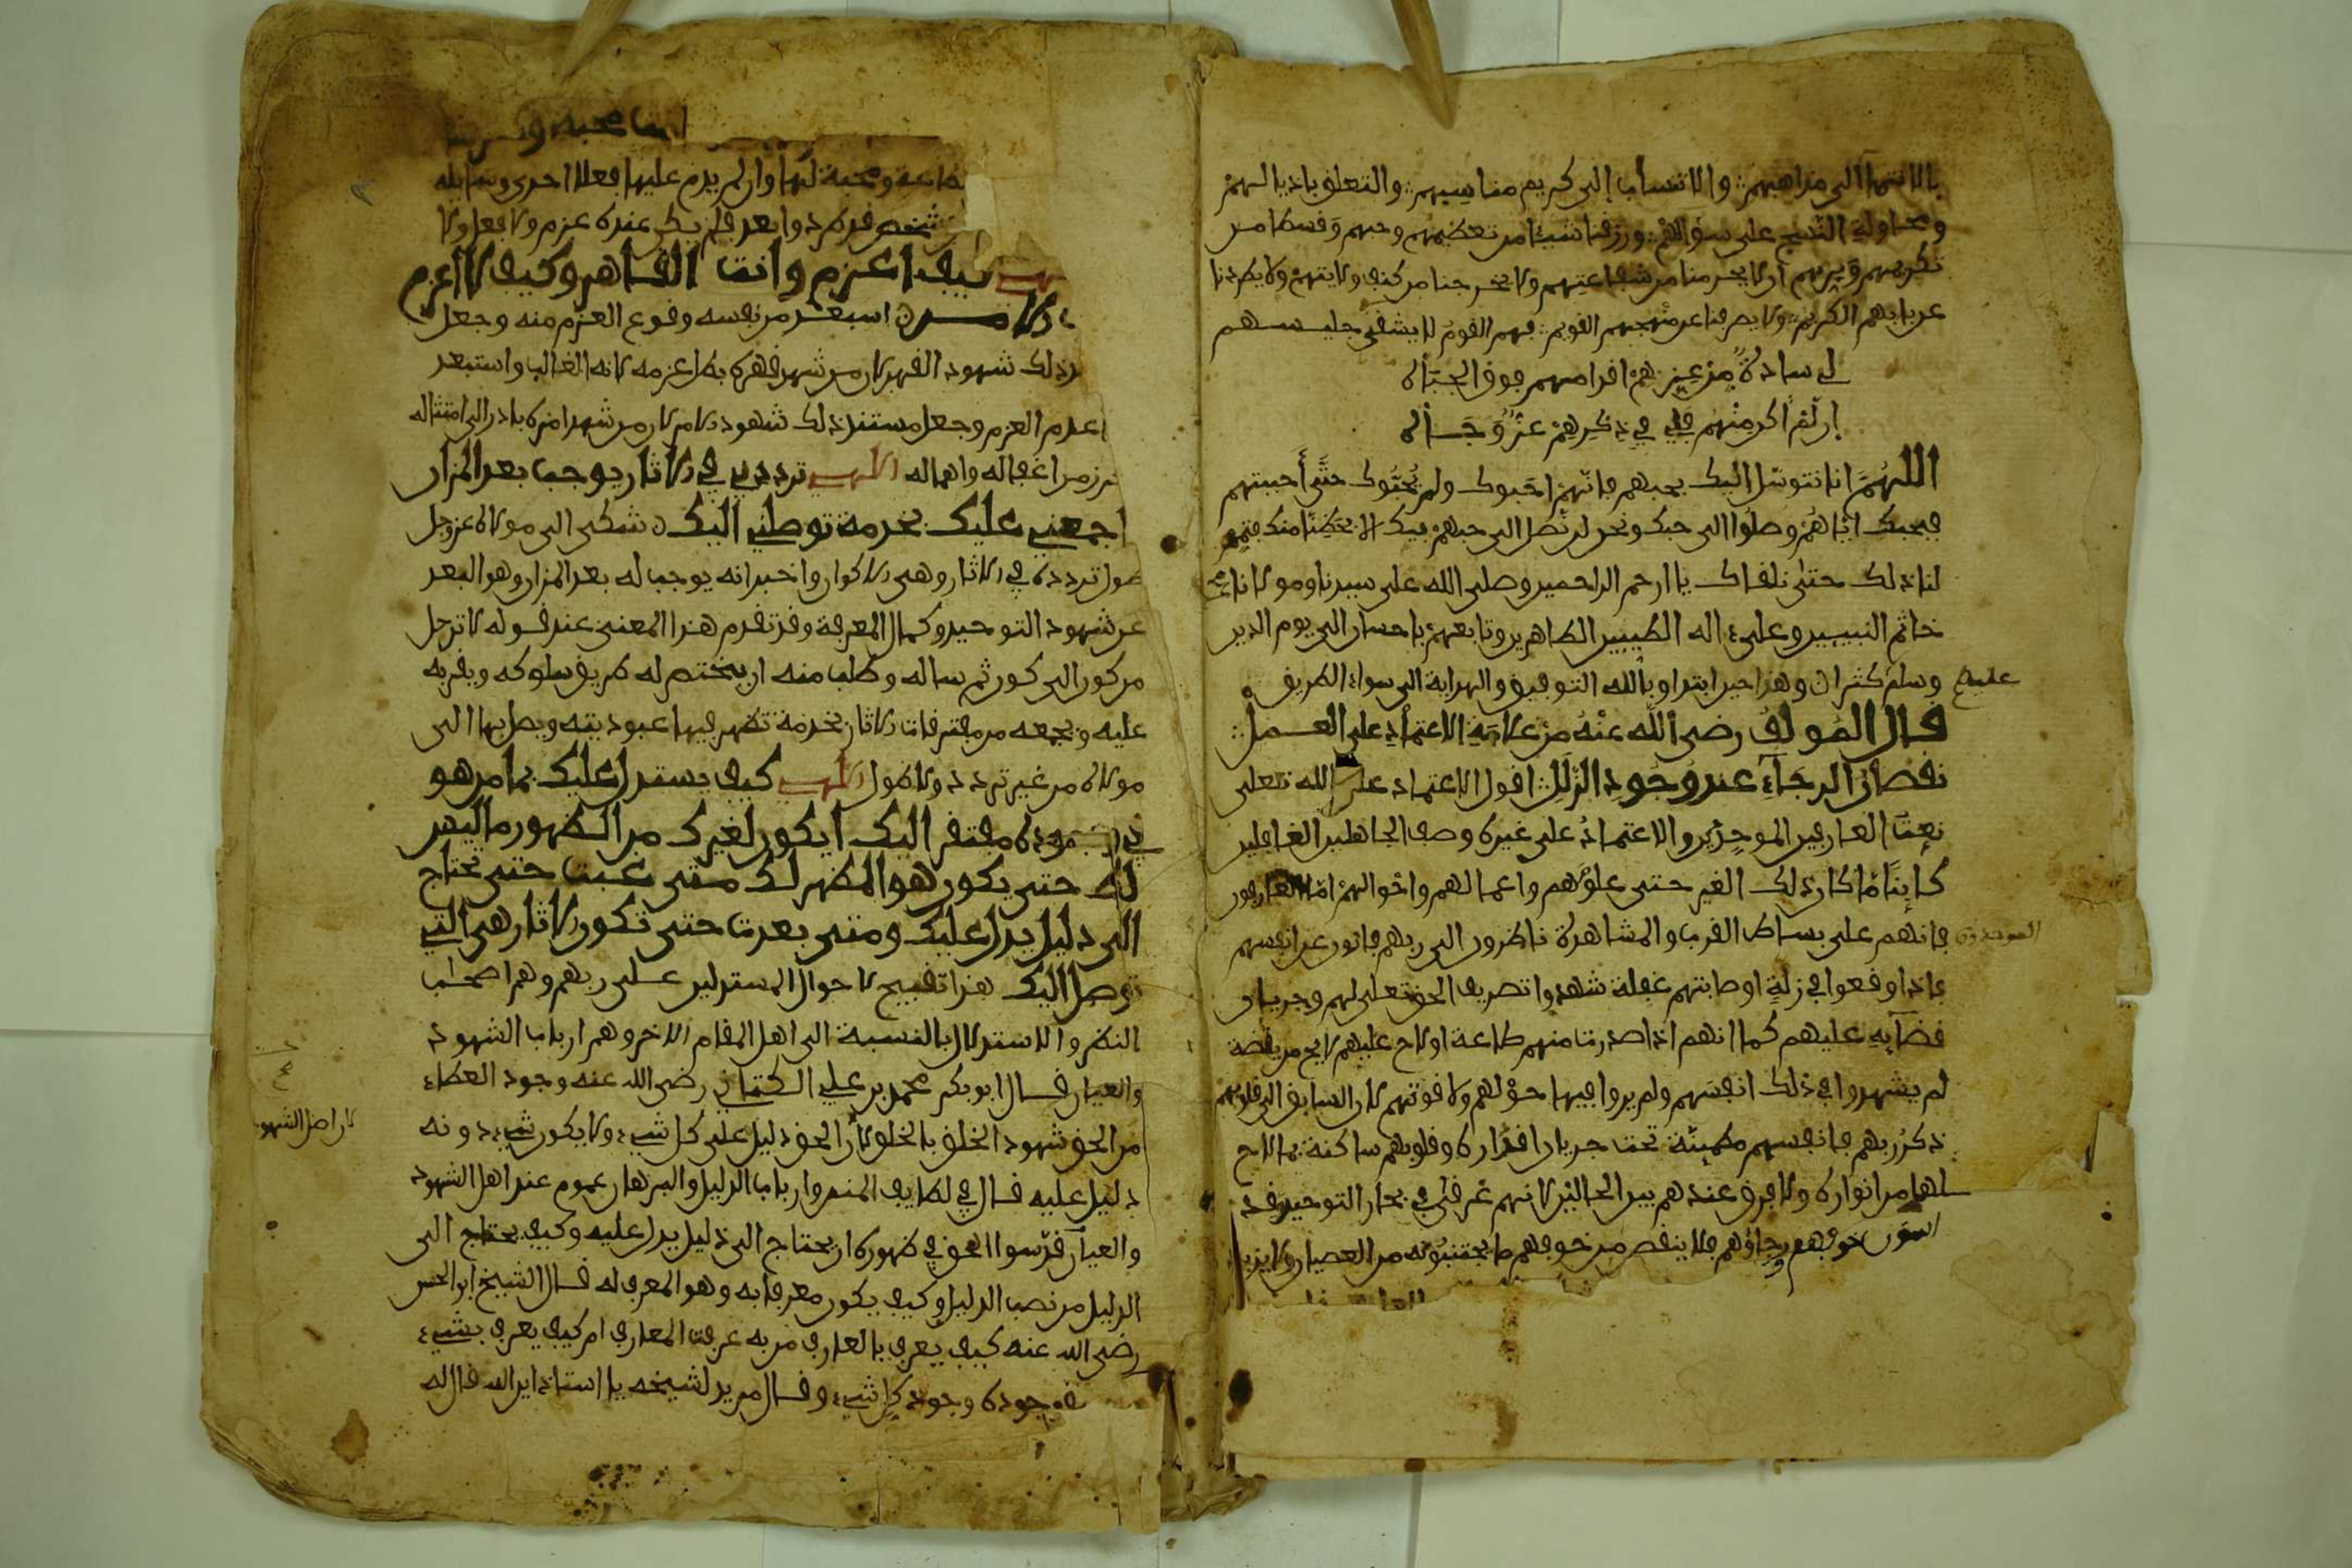 بالانتماء الى مذاهبهم والانتساب إلى كريم مناسبهم والتعلق باذيالهم
ومحاولة النسج على منوالهم ورزقنا شيئا من تعظيمهم وحبهم وقسطا من
تكريمهم وبرهم أن لا يحرمنا من شفاعتهم ولا يخرجنا من كنف ولايتهم ولا يطردنا
عن بابهم الكريم ولا يصرفنا عن منهجهم القويم فهم القوم لا يشقى جليسهم
لي سادة من عزهم اقدامهم فوق الجباه
إن لم اكن منهم فلي في ذكرهم عز وجاه
اللهم انا نتوسل اليك بحبهم فانهم احبوك ولم يحبوك حتى أحببتهم
فبحبك اياهم وصلوا الى حبك ونحن لم نصل الى حبهم فيك الا بحظنا منك فتمم
لنا ذلك حتى نلقاك يا ارحم الراحمين وصلى الله على سيدنا ومولانا محمد
خاتم النبيين وعلى اله الطيبين الطاهرين وتابعهم باحسان الى يوم الدين
وسلم كثيرا وهذا حين ابتدا وبالله التوفيق والهداية الى سواء الطريق
قال المولف رضى الله عنه من علامة الاعتماد على العمل
نقصان الرجاء عند وجود الزلل اقول الاعتماد على الله تعلى
نعت العارفين الموحدين والاعتماد على غيره وصف الجاهلين الغافلين
كاينا ما كان ذلك الغير حتى علومهم واعمالهم واحوالهم اما العارفون
الموحدون فانهم على بساط القرب والمشاهدة ناظرون الى ربهم فانون عن انفسهم
فاذا وقعوا في زلة او صابتهم غفلة شهدوا تصريف الحق تعلى لهم وجريان
قضايه عليهم كما انهم اذا صدرت منهم طاعة او لاح عليهم لايح من يقظة
لم يشهدوا في ذلك انفسهم ولم يروا فيها حولهم ولا قوتهم لان السابق الى قلوبهم
ذكر ربهم فانفسهم مطمينة تحت جريان اقداره وقلوبهم ساكنة بما لاح
لها من انواره ولا فرق عندهم بين الحالين لانهم غرقى في بحار التوحيد قد
استوى خوفهم ورجاؤهم فلا ينقص من خوفهم ما يجتنبونه من العصيان ولا يزيد
طاعة ومحبة لها وان لم يدم عليها فعلا
شخص
كيف اعزم وانت القاهر وكيف لا اعزم
استبعد من نفسه وقوع العزم منه وجعل
ذلك شهود القهر لان من شهد قهره بطل عزمه لانه الغالب واستبعد
عدم العزم وجعل مستند ذلك شهود الامر لان من شهد امره بادر الى امتثاله
من اغفاله واهماله الاهي ترددي في الاثار يوجب بعد المزار
اجمعني عليك بخدمة توصلني اليك شكى الى مولاه عز وجل
طول تردده في الاثار وهي الاكوان واخبر انه يوجب له بعد المزار وهو البعد
عن شهود التوحيد وكمال المعرفة وقد تقدم هذا المعنى عند قوله لا ترحل
من كون الى كون ثم ساله وطلب منه ان يختصر له طريق سلوكه ويقربه
عليه ويجمعه من مفترقات الاثار بخدمة تظهر فيها عبوديته ويصل بها الى
مولاه من غير تردد ولا طول الاهي كيف يستدل عليك بما هو
في وجوده مفتقر اليك ايكون لغيرك من الظهور ما ليس
لك حتى يكون هو المظهر لك متى غبت حتى تحتاج
الى دليل يدل عليك ومتى بعدت حتى تكون الاثار هي التي
توصل اليك هذا تقبيح لاحوال المستدلين على ربهم وهم اصحاب
النظر والاستدلال بالنسبة الى اهل المقام الاخر وهم ارباب الشهود
والعيان قال ابو بكر محمد بن علي الكتاني رضى الله عنه وجود العطاء
من الحق شهود الخلق بالخلق لان الحق دليل على كل شيء ولا يكون شيء دونه
دليل عليه قال في لطايف المنن وارباب الدليل والبرهان عموم عند اهل الشهود
والعيان قدسوا الحق في ظهوره ان يحتاج الى دليل يدل عليه وكيف يحتاج الى
الدليل من نصب الدليل وكيف يكون معرفا به وهو المعرف له قال الشيخ ابو الحسن
رضى الله عنه كيف يعرف بالمعارف من به عرفت المعارف ام كيف يعرف بشيء
وجوده وجود كل شيء وقال مريد لشيخه يا استاذ اين الله قال له
لان اهل الشهود